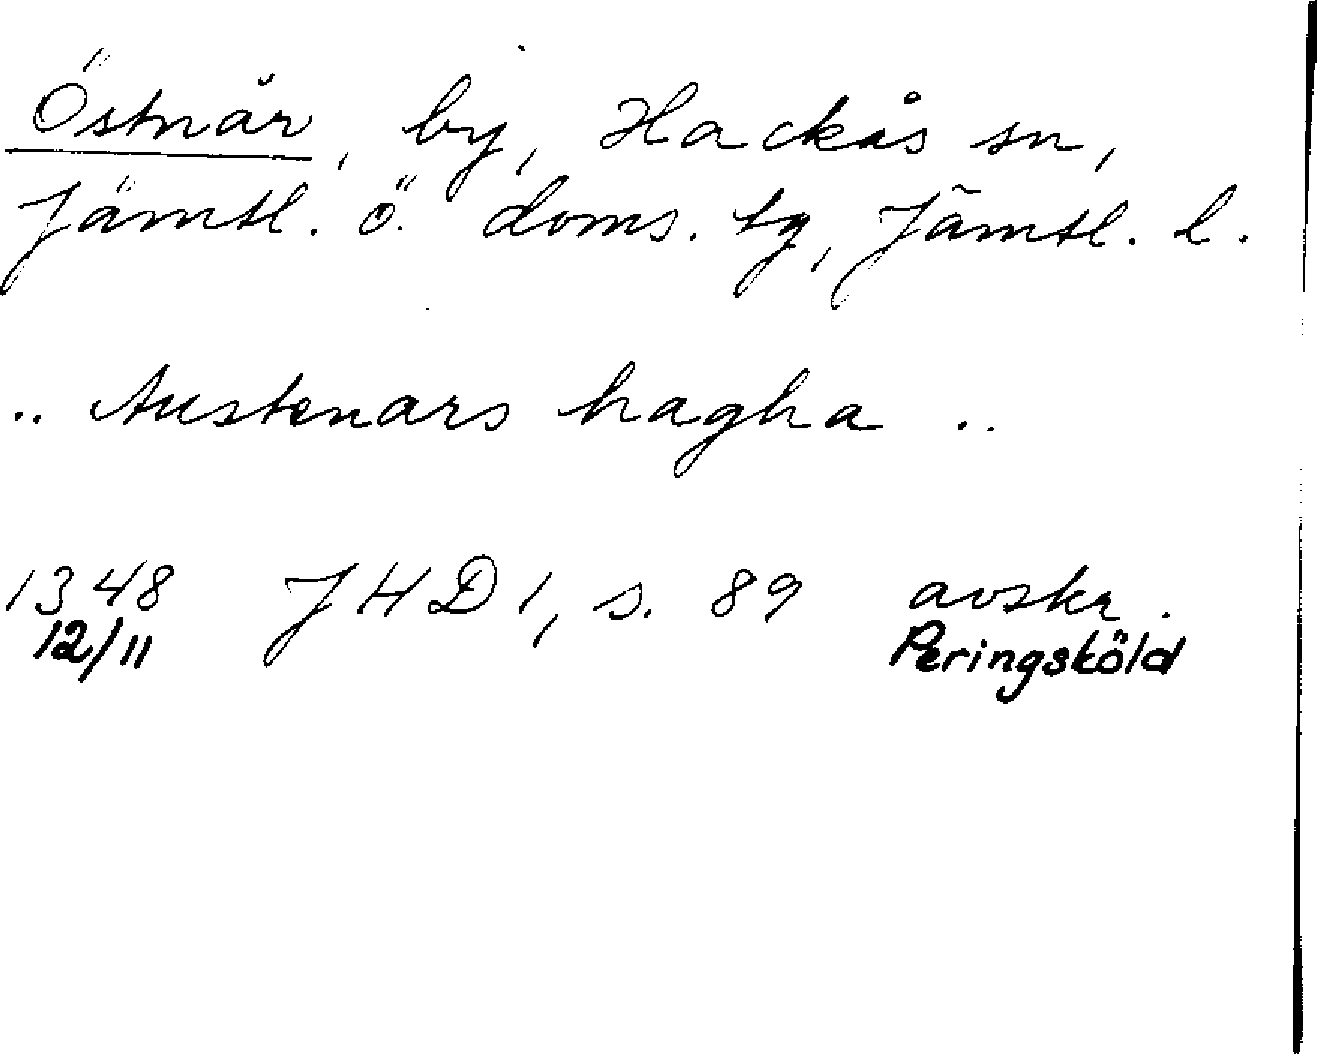 Östnår, by, Hackås sn,
Jämtl. ö. doms. tg, Jämtl. l.
.. Austenars hagha ..
1348 JHD 1, s. 89 avskr.
12/11 Peringsköld